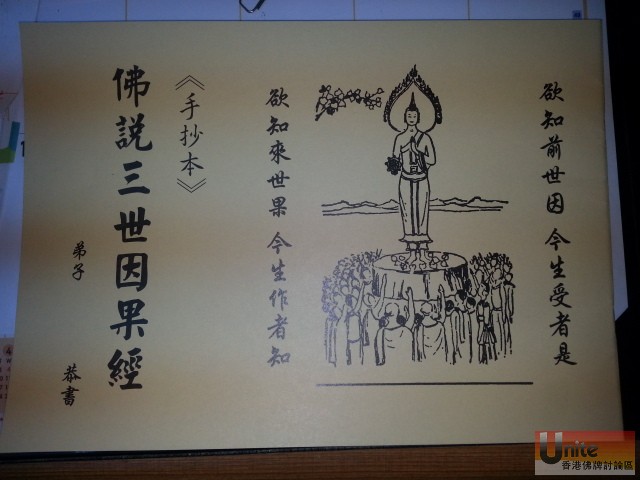 欲知前世因 今生受者是
欲知來世果 今生作者知
《手抄本》
佛說三世因果經
弟子 恭書
Unite
香港佛牌討論區